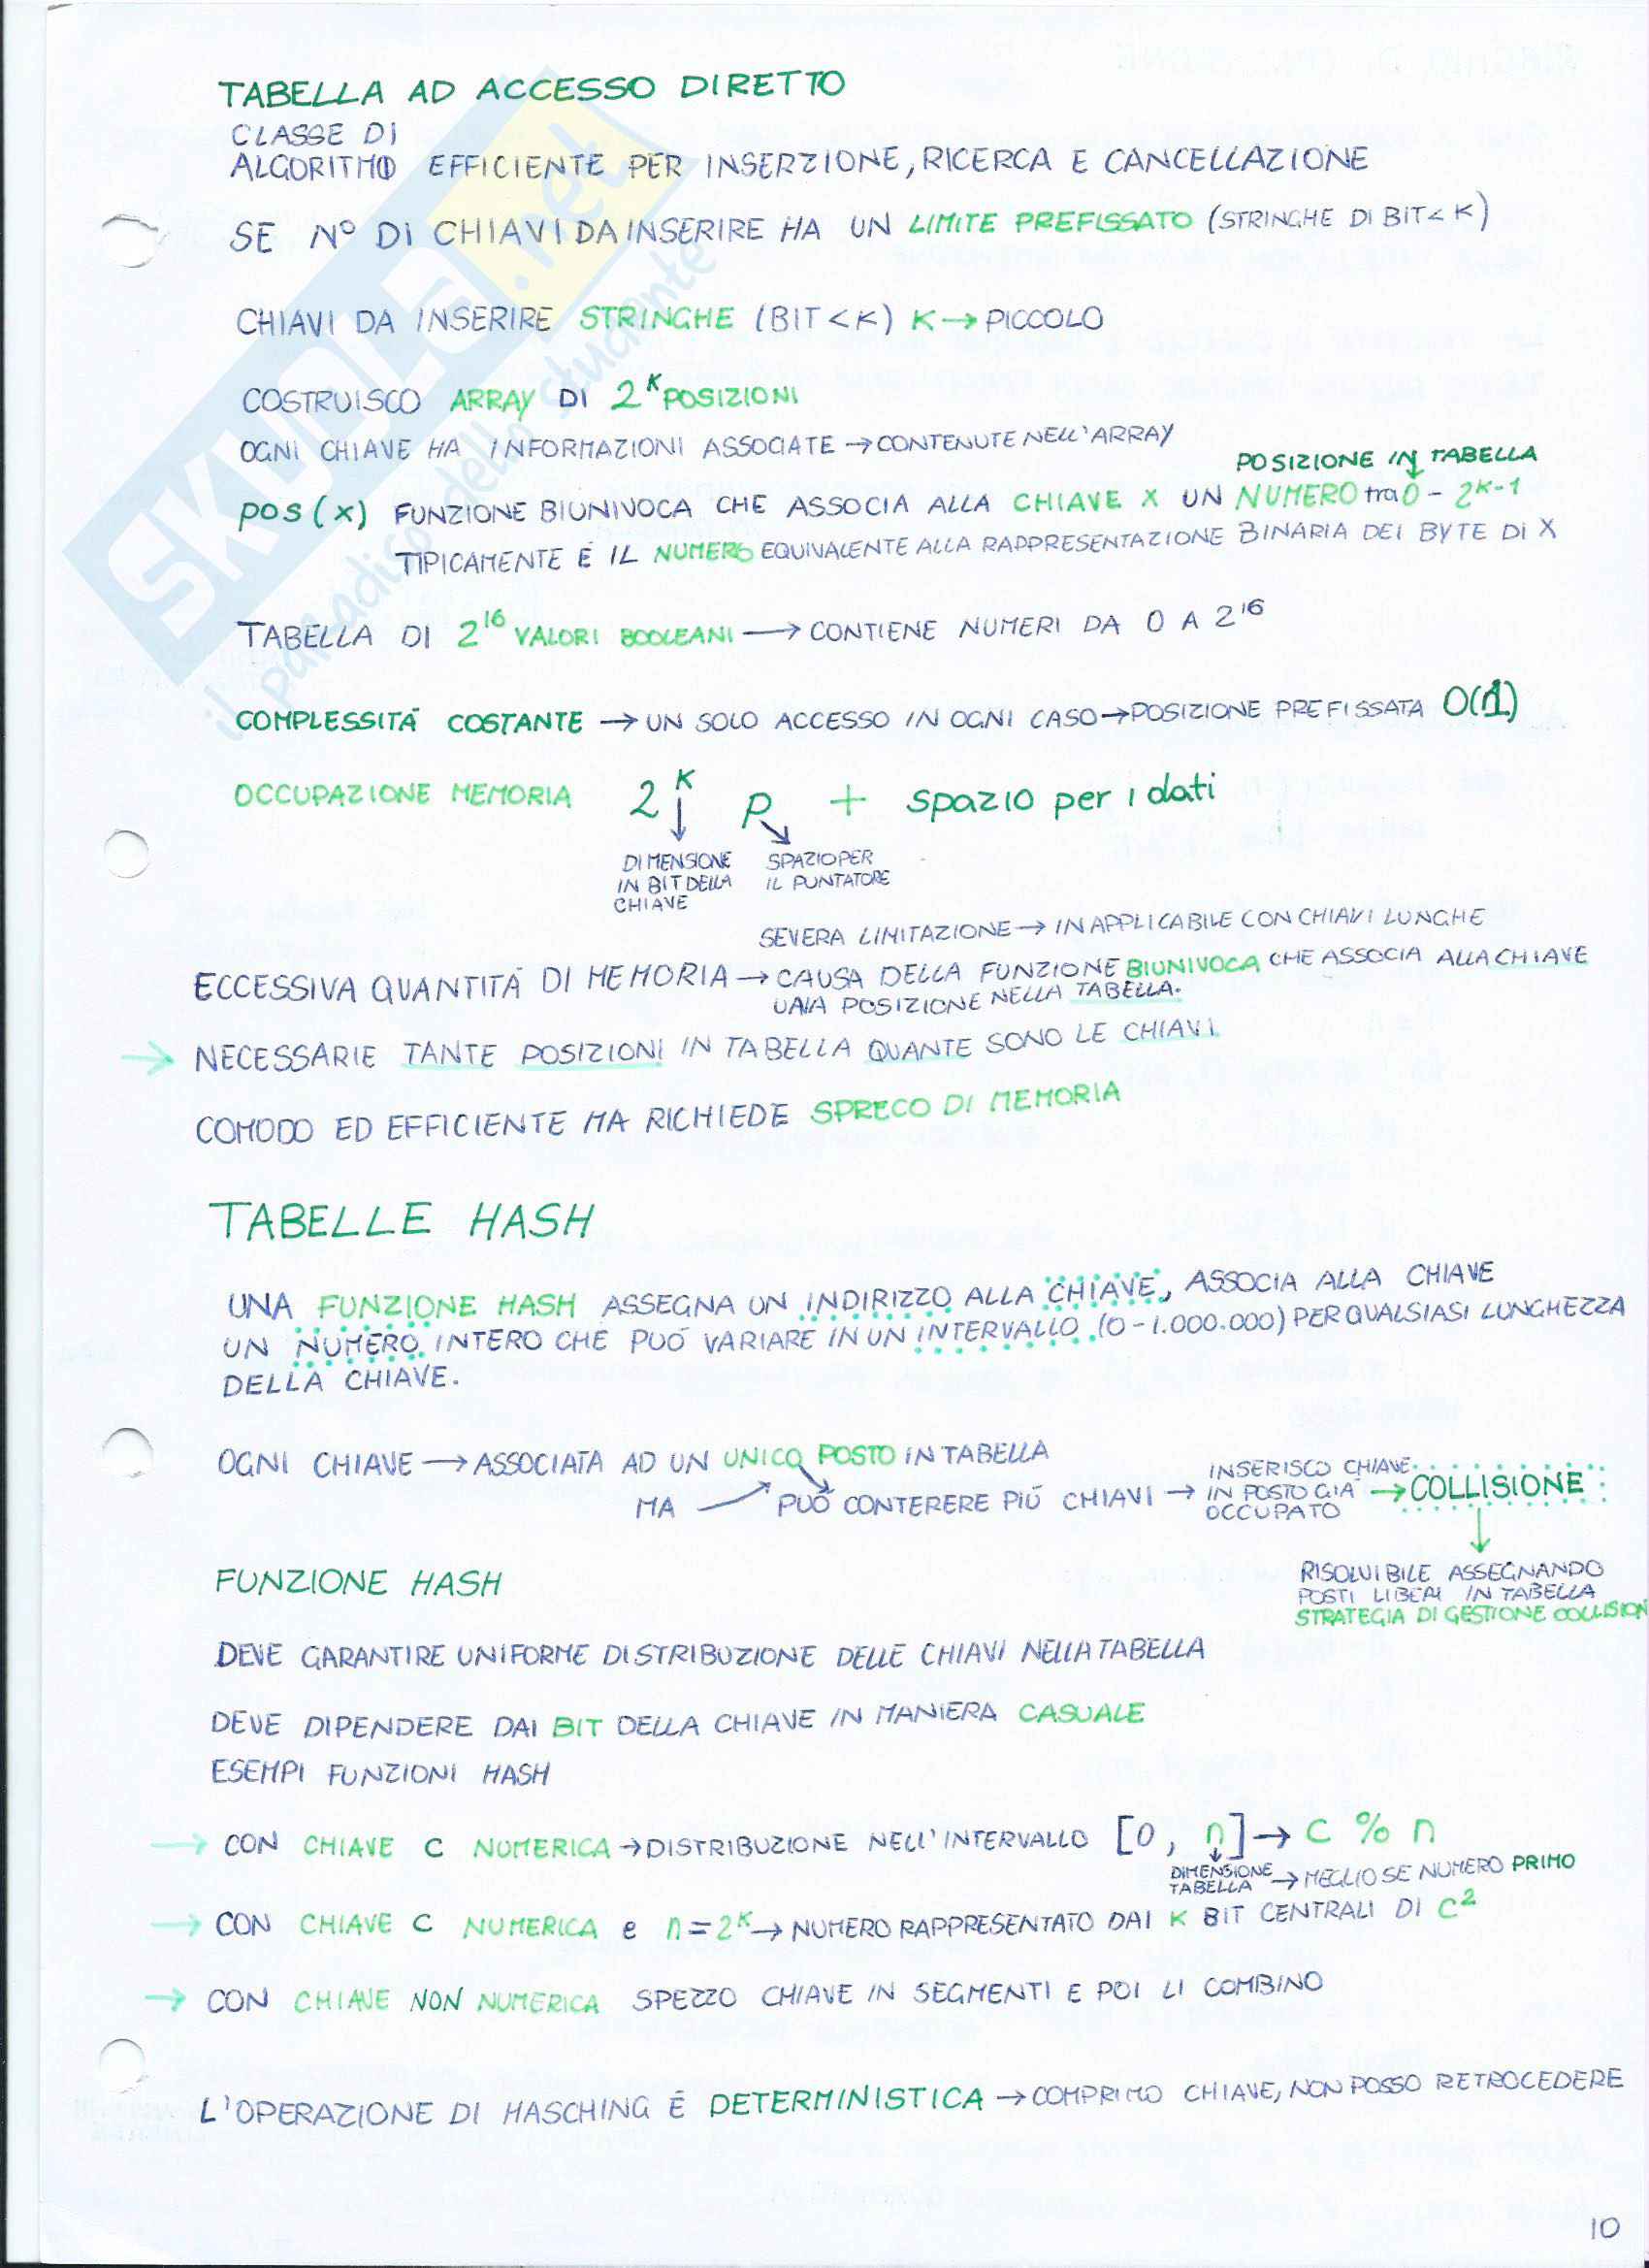 TABELLA AD ACCESSO DIRETTO
CLASSE DI
ALGORITMO EFFICIENTE PER INSERZIONE, RICERCA E CANCELLAZIONE
SE N° DI CHIAVI DA INSERIRE HA UN LIMITE PREFISSATO (STRINGHE DI BIT < K)
CHIAVI DA INSERIRE STRINGHE (BIT < K) K → PICCOLO
COSTRUISCO ARRAY DI 2^K POSIZIONI
OGNI CHIAVE HA INFORMAZIONI ASSOCIATE → CONTENUTE NELL'ARRAY
POSIZIONE IN TABELLA
pos(x) FUNZIONE BIUNIVOCA CHE ASSOCIA ALLA CHIAVE X UN NUMERO tra 0 - 2^K-1
TIPICAMENTE È IL NUMERO EQUIVALENTE ALLA RAPPRESENTAZIONE BINARIA DEI BYTE DI X
TABELLA DI 2^16 VALORI BOOLEANI → CONTIENE NUMERI DA 0 A 2^16
COMPLESSITÀ COSTANTE → UN SOLO ACCESSO IN OGNI CASO → POSIZIONE PREFISSATA O(1)
OCCUPAZIONE MEMORIA 2^K p + spazio per i dati
DIMENSIONE SPAZIO PER
IN BIT DELLA IL PUNTATORE
CHIAVE
SEVERA LIMITAZIONE → INAPPLICABILE CON CHIAVI LUNGHE
ECCESSIVA QUANTITÀ DI MEMORIA → CAUSA DELLA FUNZIONE BIUNIVOCA CHE ASSOCIA ALLA CHIAVE
UNA POSIZIONE NELLA TABELLA.
→ NECESSARIE TANTE POSIZIONI IN TABELLA QUANTE SONO LE CHIAVI
COMODO ED EFFICIENTE MA RICHIEDE SPRECO DI MEMORIA
TABELLE HASH
UNA FUNZIONE HASH ASSEGNA UN INDIRIZZO ALLA CHIAVE, ASSOCIA ALLA CHIAVE
UN NUMERO INTERO CHE PUÓ VARIARE IN UN INTERVALLO (0 - 1.000.000) PER QUALSIASI LUNGHEZZA
DELLA CHIAVE.
OGNI CHIAVE → ASSOCIATA AD UN UNICO POSTO IN TABELLA
MA → PUÓ CONTERERE PIÚ CHIAVI → INSERISCO CHIAVE IN POSTO GIÀ OCCUPATO → COLLISIONE
RISOLVIBILE ASSEGNANDO
POSTI LIBERI IN TABELLA
STRATEGIA DI GESTIONE COLLISION
FUNZIONE HASH
DEVE GARANTIRE UNIFORME DISTRIBUZIONE DELLE CHIAVI NELLA TABELLA
DEVE DIPENDERE DAI BIT DELLA CHIAVE IN MANIERA CASUALE
ESEMPI FUNZIONI HASH
→ CON CHIAVE C NUMERICA → DISTRIBUZIONE NELL'INTERVALLO [0, n] → C % n
DIMENSIONE TABELLA → MEGLIO SE NUMERO PRIMO
→ CON CHIAVE C NUMERICA e n = 2^K → NUMERO RAPPRESENTATO DAI K BIT CENTRALI DI C²
→ CON CHIAVE NON NUMERICA SPEZZO CHIAVE IN SEGMENTI E POI LI COMBINO
L'OPERAZIONE DI HASCHING É DETERMINISTICA → COMPRIMO CHIAVE, NON POSSO RETROCEDERE
10
SKUOLa.net
il paradiso dello studente